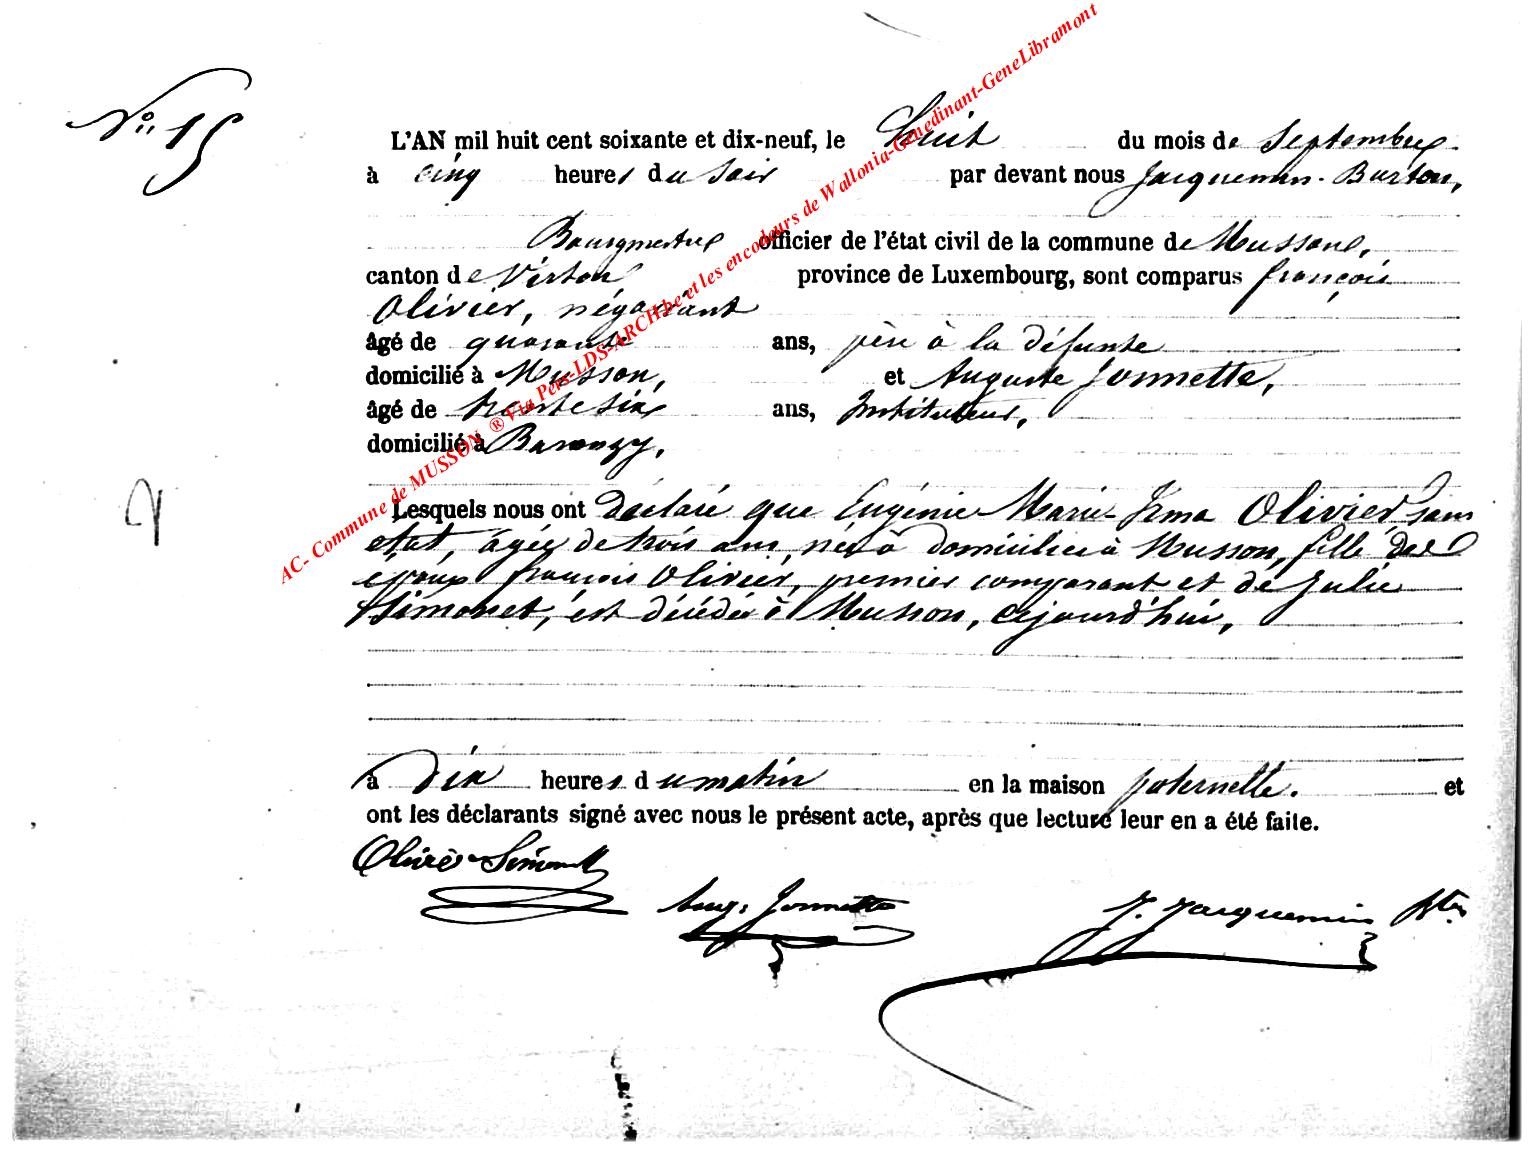 N° 15
L'AN mil huit cent soixante et dix-neuf, le huit du mois de Septembre
à cinq heures du Soir par devant nous Jacquemin-Burton,
Bourgmestre officier de l'état civil de la commune de Musson,
canton de Virton province de Luxembourg, sont comparus françois
Olivier, négociant
âgé de quarante ans, père à la défunte
domicilié à Musson, et Auguste Jonnette,
âgé de trente six ans, Instituteur,
domicilié à Baranzy,
Lesquels nous ont déclaré que Eugénie Marie Irma Olivier, sans
état, âgée de trois ans, née à domiciliée à Musson, fille des
époux françois Olivier, premier comparant et de Julie
Simonet, est décédée à Musson, cejourd'hui,
à dix heures du matin en la maison paternelle. et
ont les déclarants signé avec nous le présent acte, après que lecture leur en a été faite.
Olivier-Simonet
Aug. Jonnette
J. Jacquemin Btn
AC- Commune de MUSSON ® Via Pers-LDS-ARCH.be et les encodeurs de Wallonia-Genedinant-GeneLibramont